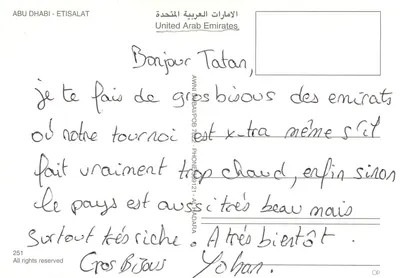 ABU DHABI - ETISALAT
الامارات العربية المتحدة
United Arab Emirates
Bonjour Tatan,
je te fais de gros bisous des emirats
où notre tournoi est x-tra même s'il
fait vraiment trop chaud, enfin sinon
le pays est aussi très beau mais
surtout très riche. A très bientôt.
Gros Bijous Yohan.
251
All rights reserved